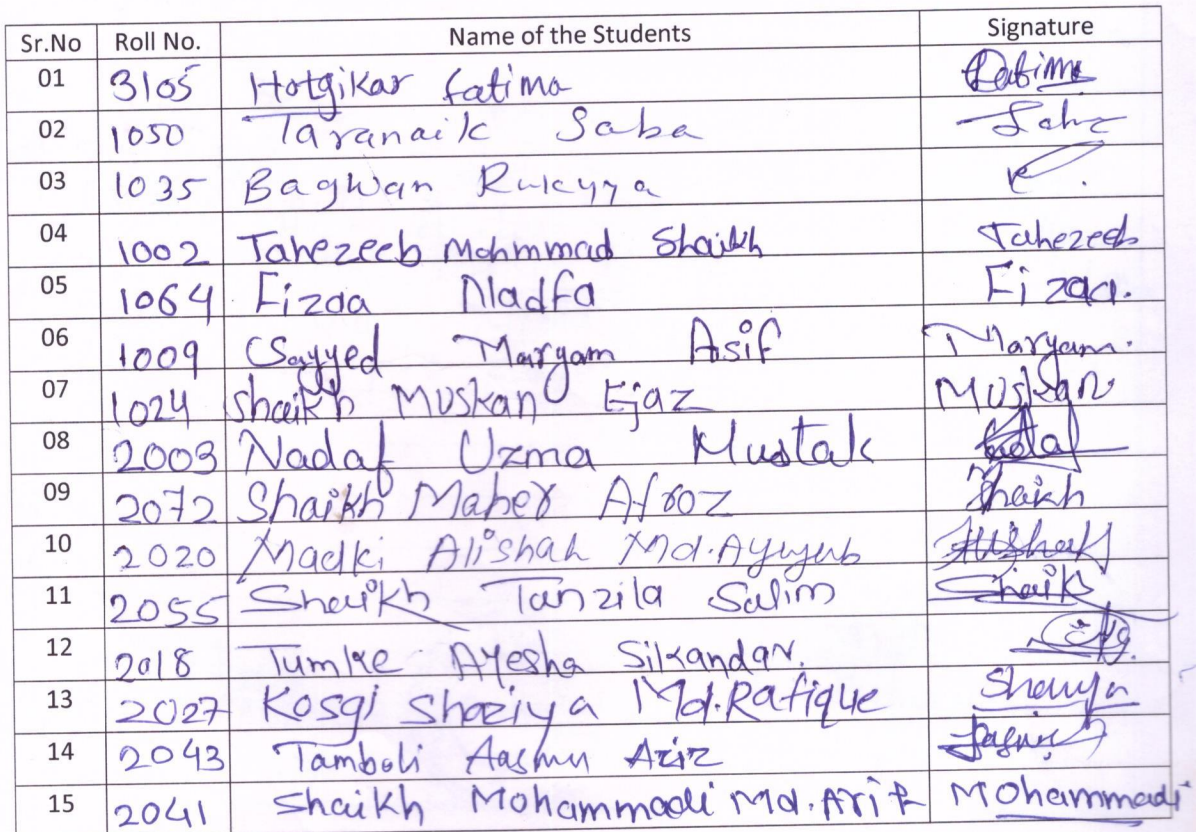 Sr.No Roll No. Name of the Students Signature
01 3105 Hotgikar Fatima Fatima
02 1050 Taranaik Saba Saba
03 1035 Bagwan Rukayya
04 1002 Tahezeeb Mohmmad Shaikh Tahezeeb
05 1064 Fizaa Nadfa Fizaa.
06 1009 Sayyed Maryam Asif Maryam.
07 1024 Shaikh Muskan Ejaz Muskan
08 2003 Nadaf Uzma Mustak
09 2072 Shaikh Maher Afroz Shaikh
10 2020 Madki Alishah Md.Ayuyub
11 2055 Shaikh Tanzila Salim Shaik
12 2018 Tumke Ayesha Sikandar.
13 2027 Kosgi Shaziya Md.Rafique
14 2043 Tamboli Aziz
15 2041 Shaikh Mohammadi Md.Arif Mohammadi